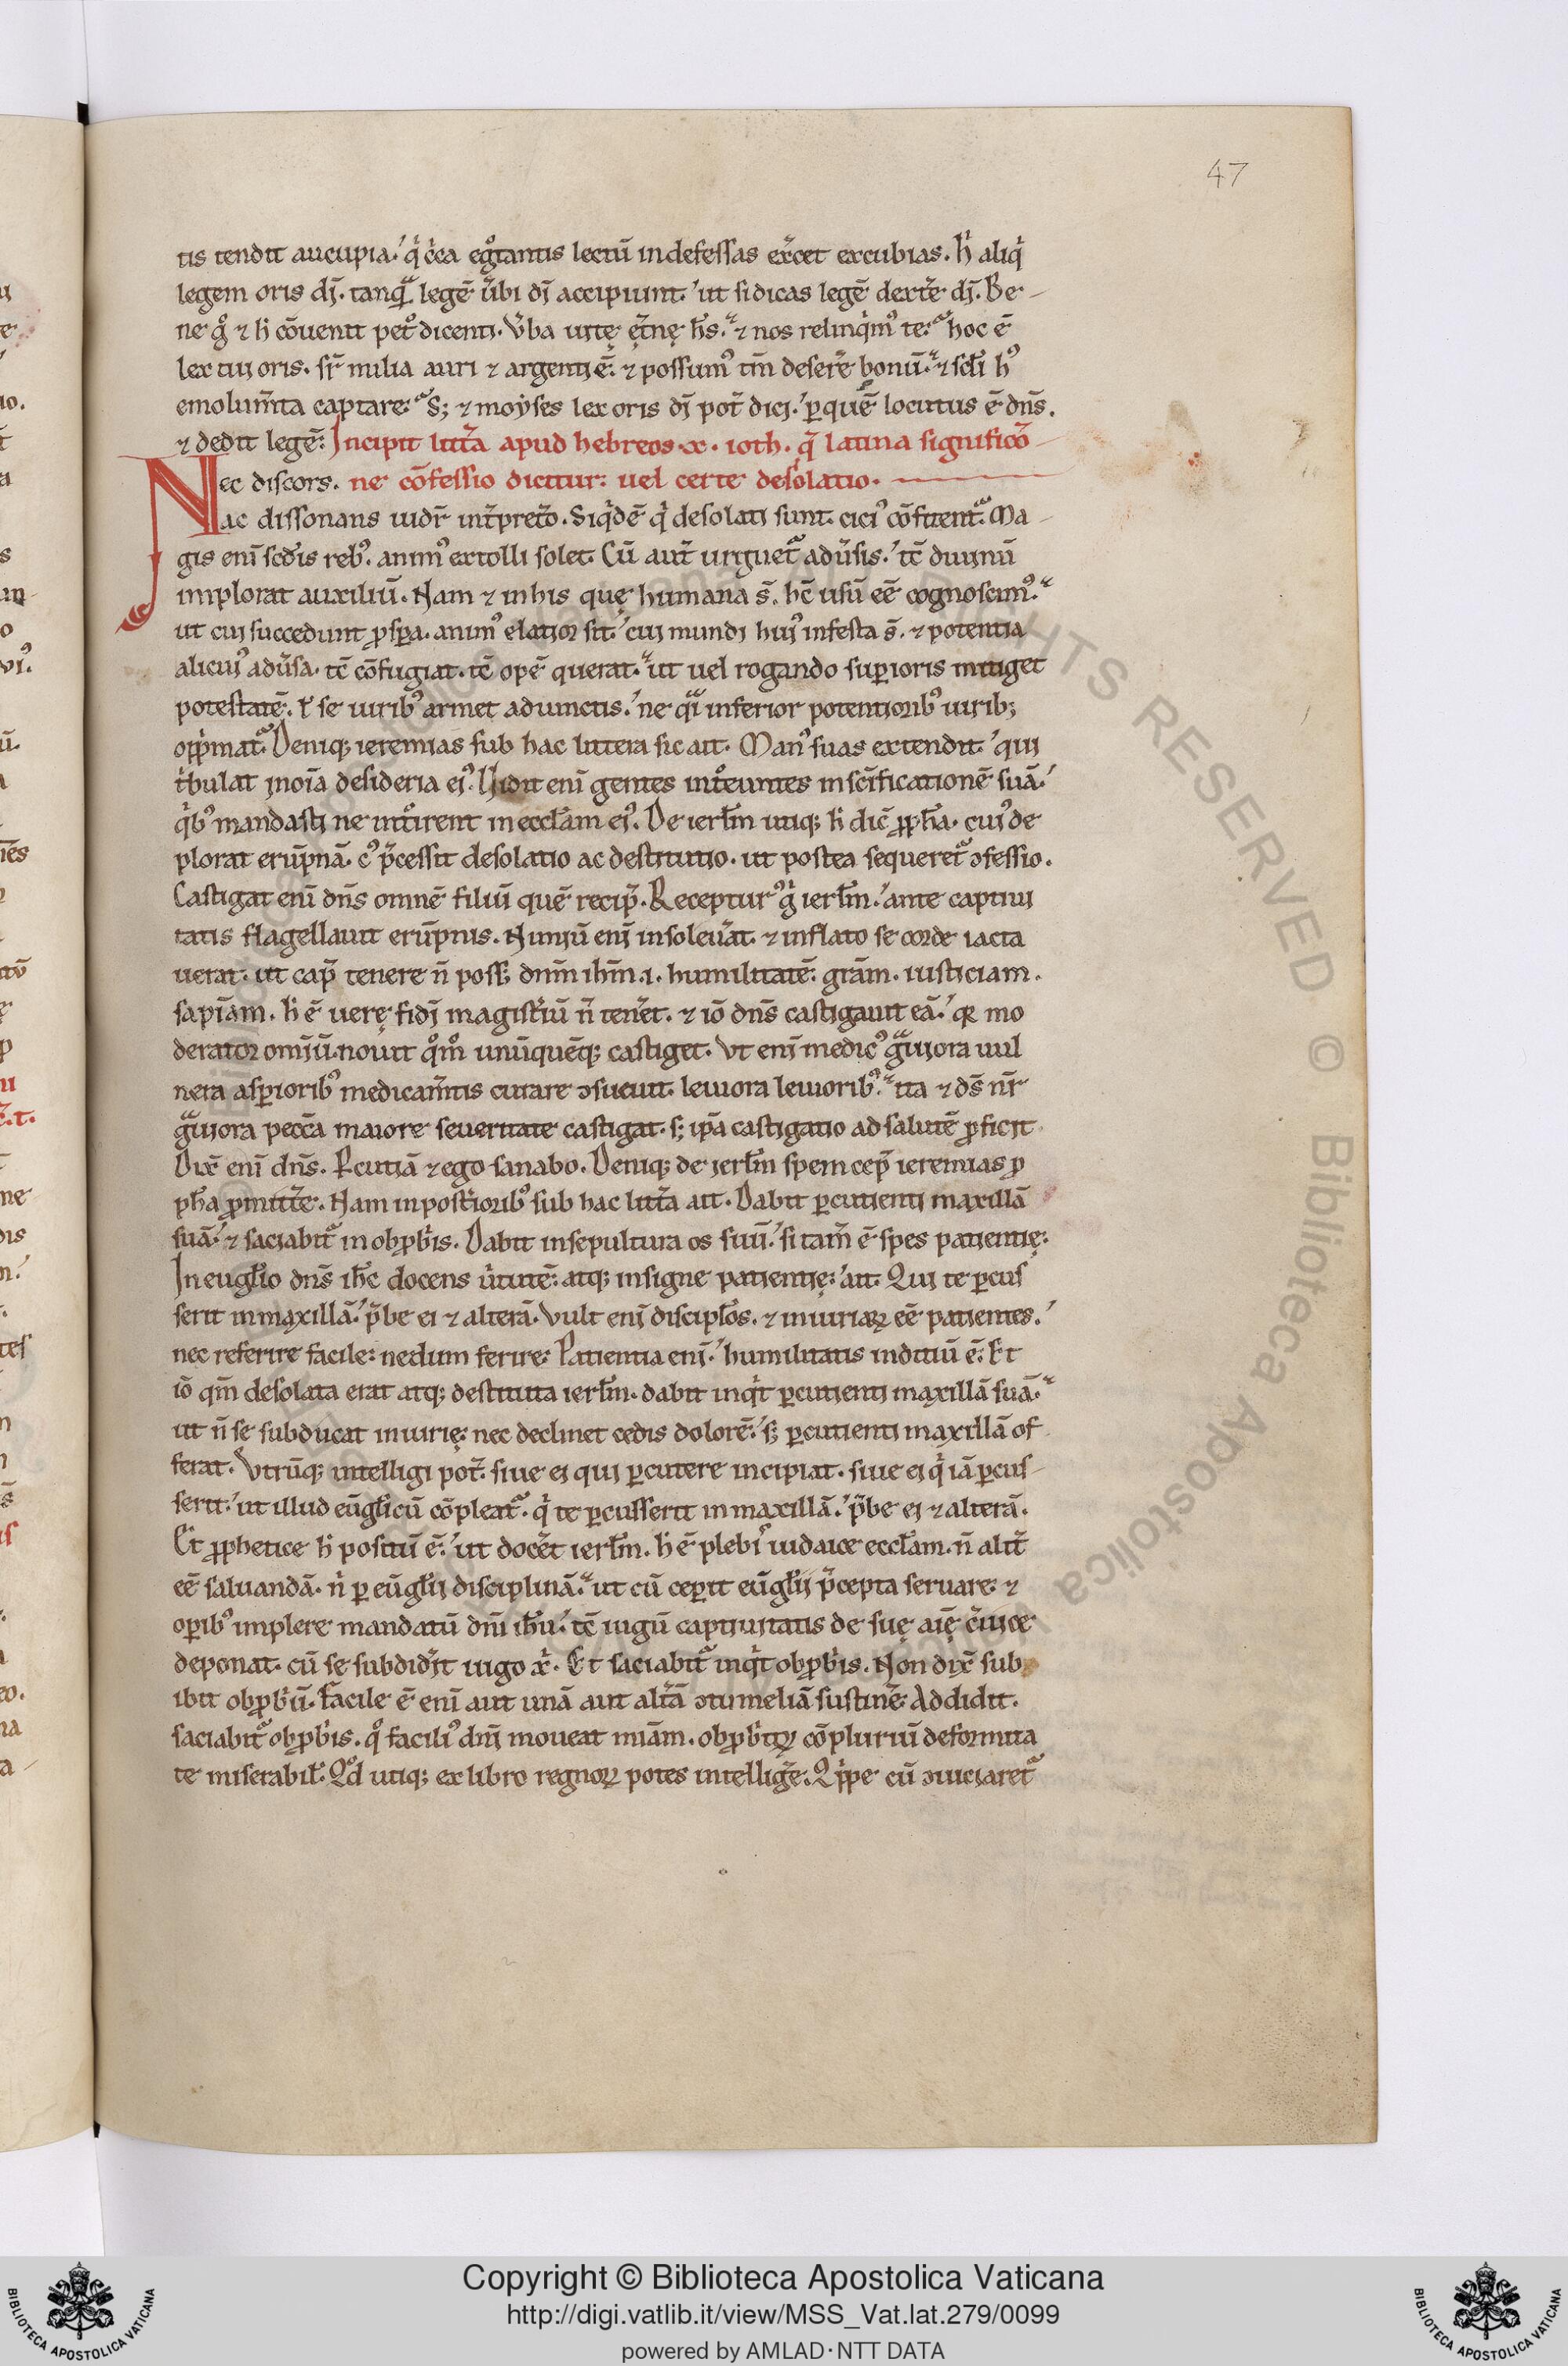 47
tis tendit aucupia.' q̇ c̓ca eg̊tantis lectū indefessas ex̓cet excubias. h̓ aliq̇
legem oris dj̄. tanq̃ legē ũbi dj̄ accipiunt.' ut si dicas legē dext̓e dj̄. Be-
ne g̊ ⁊ h̓ cōuenit pet̊ dicenti. Ũba uitę ęt̓nę h̄s. ⁊ nos relinq̇mꝰ te. hoc ē
lex tui oris. sr̄ milia auri ⁊ argentj ē. ⁊ possumꝰ tm̄ deser̓e bonū. ⁊ scd̄i hꝰ
emolum̄ta captare. S; ⁊ moẏses lex oris dj̄ pot̓ dici.' ꝑ quē locutus ē dn̄s.
⁊ dedit legē. Incipit litt̓a apud hebreos .x. ioth. q̃ latina significō
Nec discors. ne cōfessio dicitur: uel certe desolatio.
ac dissonans uidr̄ int̓pret̓o. Siq̇dē q̇ desolati sunt. citiꝰ cōfitent̃. Ma-
gis enī scd̄is rebꝰ. animꝰ extolli solet. Cū aut̓ urguet̃ adũsis.' tc̄ diuinū
implorat auxiliū. Nam ⁊ in his quę humana s̄. hc̄ usū eē cognoscimꝰ.
ut cui succedunt ꝓsꝑa. animꝰ elatior sit.' cui mundj huiꝰ infesta s̄. ⁊ potentia
alicuiꝰ adũsa. tc̄ cōfugiat. tc̄ opē querat. ut uel rogando suꝑioris mitiget
potestatē. ł se uiribꝰ armet adiunctis.' ne q̃i inferior potentioribꝰ uirib;
opp̓mat̃. Deniq; ieremias sub hac littera sic ait. Manꝰ suas extendit.' qui
t̓bulat in oīa desideria eiꝰ. Uidit enī gentes int̊euntes in sc̄ificationē suā.'
q̇bꝰ mandasti ne int̊irent in eccl̄am eiꝰ. De ierl̄m utiq; h̓ dic̄ ꝓph̄a. cuiꝰ de
plorat erūpnā. cꝰ p̃cessit desolatio ac destitutio. ut postea sequeret̃ ɔfessio.
Castigat enī dn̄s omnē filiū quē recip̃. Recepturꝰ g̊ ierl̄m.' ante captiui
tatis flagellauit erūpnis. Nimiū enī insoleu̓at. ⁊ inflato se corde iacta
uerat. ut cap̃ tenere n̄ poss; dn̄m ih̄m .i. humilitatē. gr̄am. iusticiam.
sapīam. h̓ ē uerę fidj magist̓iū n̄ ten̓et. ⁊ iō dn̄s castigauit eā.' qꝛ mo
derator omiū. nouit q̊m̊ unūquēq; castiget. Ut enī medicꝰ g̃uiora uul
nera asꝑioribꝰ medicam̄tis curare ɔsueuit. leuiora leuioribꝰ. ita ⁊ dn̄s nr̄
g̃uiora peccā maiore seueritate castigat. s; ip̄a castigatio ad salutē ꝓficit
Dix̄ enī dn̄s. Ꝑcutiā ⁊ ego sanabo. Deniq; de ierl̄m spem cep̃ ieremias ꝓ
ph̄a ꝓmitt̓e. Nam in post̓ioribꝰ sub hac litt̓a ait. Dabit ꝑcutienti maxillā
suā.' ⁊ saciabit̃ in obꝓb̓is. Dabit in sepultura os suū.' si tam̄ ē spes patientię.
In euḡlio dn̄s ih̄c docens ũtutē. atq; insigne patientię.' ait. Qui te ꝑcus
serit in maxillā.' p̃be ei ⁊ alterā. Vult enī discipl̄os. ⁊ iniuriaꝝ eē patientes.'
nec referire facile. nedum ferire. Patientia enī.' humilitatis inditiū ē. Et
iō qm̄ desolata erat atq; destituta ierl̄m. dabit inq̇t ꝑcutienti maxillā suā.
ut n̄ se subducat iniurię. nec declinet cedis dolorē.' s; ꝑcutienti maxillā of
ferat. Utrūq; intelligi pot̓. siue ei qui ꝑcutere incipiat. siue ei q̇ iā ꝑcus-
serit.' ut illud eūgl̄icū cōpleat̃. q̇ te ꝑcusserit in maxillā.' p̃be ei ⁊ alterā.
Et ꝓphetice h̓ positū ē.' ut doc̓et ierl̄m. h̓ ē plebiꝰ iudaice eccl̄am. n̄ alit̓
eē saluandā. n̓ ꝑ eūgl̄ii disciplinā. ut cū ceꝑit eūgl̄ii p̃cepta seruare. ⁊
oꝑibꝰ implere mandatū dn̄i ih̄u.' tc̄ iugū captiuitatis de suę aīę c̓uice
deponat. cū se subdid̓it iugo x̓. Et saciabit̃ inq̇t obꝓb̓is. Non dix̄ sub
ibit obꝓb̓iū. Facile ē enī aut unā aut alt̓ā ɔtumeliā sustin̓e. Addidit.
saciabit̃ obꝓb̓is. q̊ faciliꝰ dn̄j moueat miām. obꝓb̓ioꝝ cōpluriū deformita
te miserabil̄. Qd̊ utiq; ex libro regnoꝝ potes intellig̓e. Q̇ppe cū ɔuiciaret̃
Copyright © Biblioteca Apostolica Vaticana
http://digi.vatlib.it/view/MSS_Vat.lat.279/0099
powered by AMLAD·NTT DATA